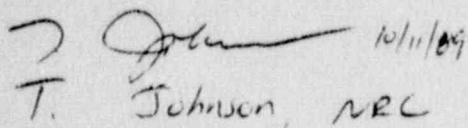 T Johnson 10/11/89
T. Johnson, NRC